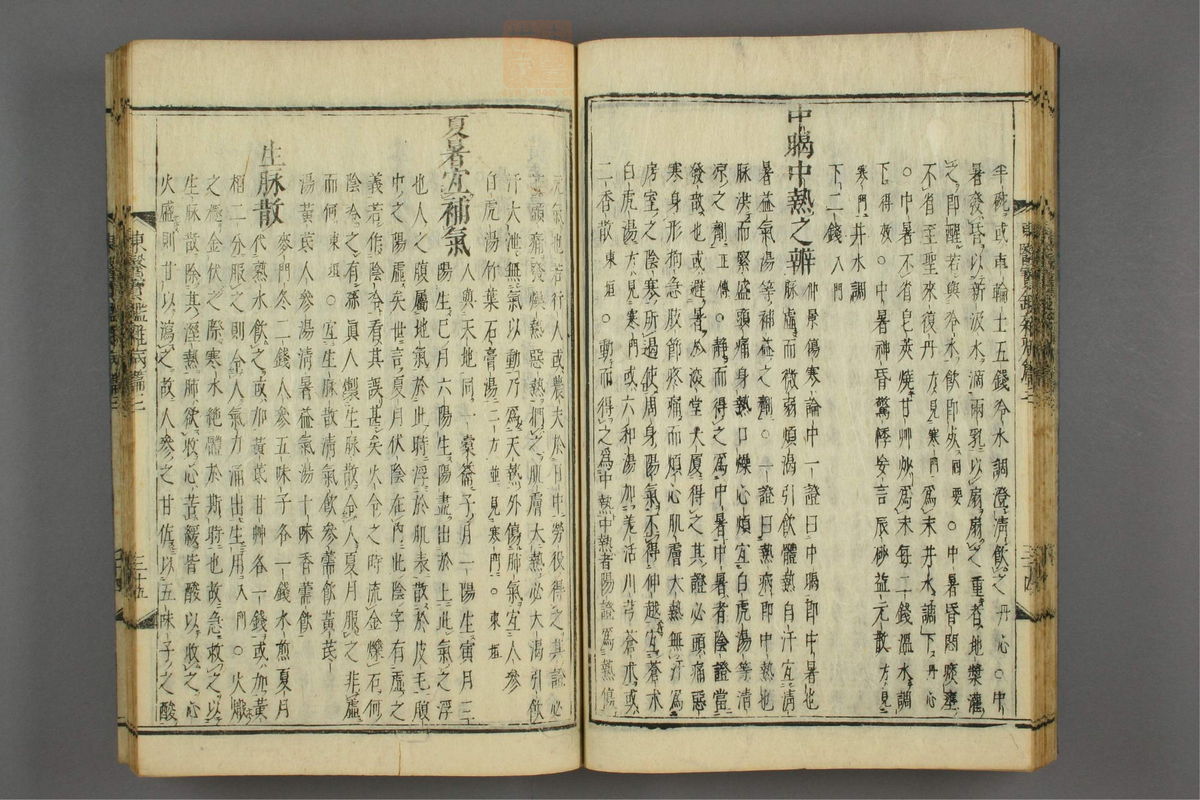 半碗或車輪土五錢冷水調澄清飲之丹心○中
暑發昏以新汲水滴兩乳以扇扇之重者地漿灌
之卽醒若與冷水飲卽死綱要○中暑昏悶痰壅
不省至聖來復丹方見寒門爲末井水調下丹心
○中暑不省皂莢燒甘艸炒爲末每二錢溫水調
下得效○中暑神昏驚悸妄言辰砂益元散方見
寒門井水調
下二錢入門
中暍中熱之辨仲景傷寒論中一證曰中暍卽中暑也
脉虛而微弱煩渴引飮體熱自汗宜淸
暑益氣湯等補益之劑○一證曰熱病卽中熱也
脉洪而緊盛頭痛身熱口燥心煩宜白虎湯等淸
凉之劑正傳○靜而得之爲中暑中暑者陰證當
發散也或避暑於深堂大廈得之其證必頭痛惡
寒身形拘急肢節疼痛而煩心肌膚大熱無汗爲
房室之陰寒所遏使周身陽氣不得伸越宜蒼朮
白虎湯方見寒門或六和湯加羌活川芎蒼朮或
二香散東垣○動而得之爲中熱中熱者陽證爲熱傷
元氣也若行人或農夫於日中勞役得之其證必
苦頭痛發燥熱惡熱捫之肌膚大熱必大渴引飮
汗大泄無氣以動乃爲天熱外傷肺氣宜人參
白虎湯竹葉石膏湯二方並見寒門○東垣
夏暑宜補氣人與天地同一橐籥子月一陽生寅月三
陽生巳月六陽生陽盡出於上此氣之浮
也人之腹屬地氣於此時浮於肌表散於皮毛腹
中之陽虛矣世言夏月伏陰在內此陰字有虛之
義若作陰冷看其誤甚矣火令之時流金爍石何
陰冷之有孫眞人製生脉散令人夏月服之非虛
而何東垣○宜生脉散淸氣飮參香薷飮黃芪
湯黃芪人參湯淸暑益氣湯十味香薷飮
生脉散麥門冬二錢人參五味子各一錢水煎夏月
代熟水飮之或加黃芪甘艸各一錢或加黃
栢二分服之則令人氣力涌出生用入門○火熾
之極金伏之際寒水絶體於斯時也故急救之以
生脉散除其濕熱肺欲收心苦緩皆酸以收之心
火盛則甘以瀉之故人參之甘佐以五味子之酸